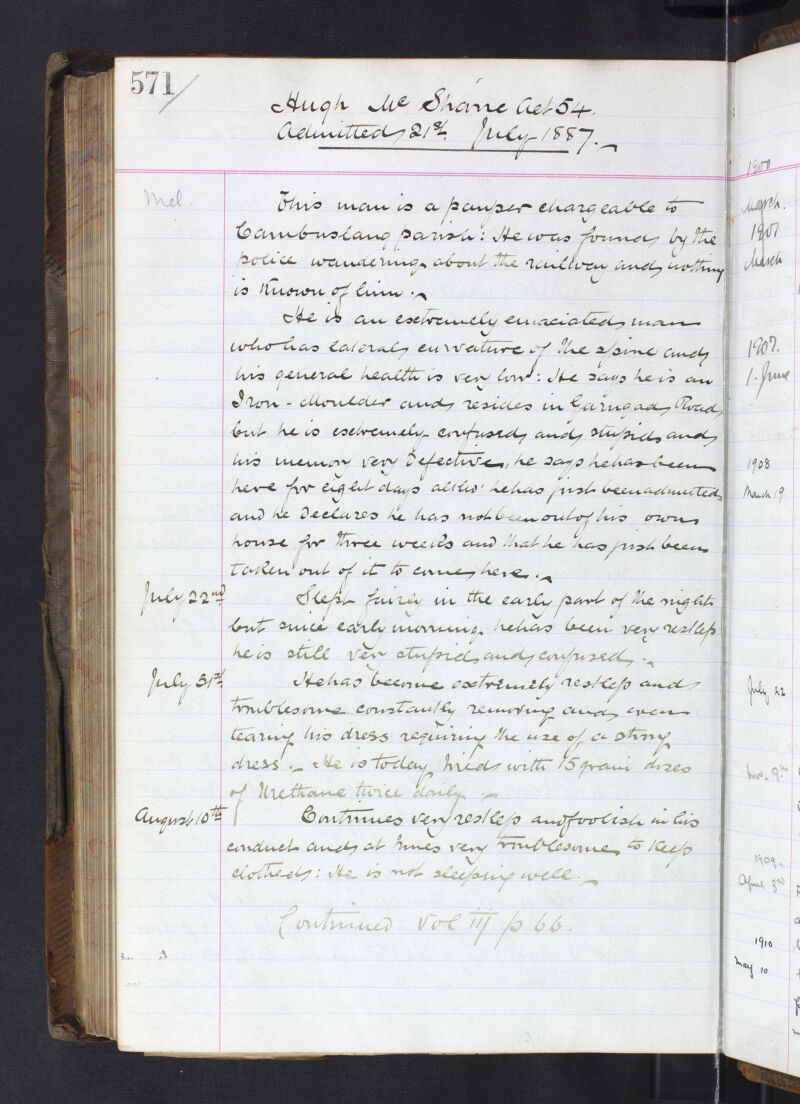 571/
Hugh Mc Shane Aet 54.
Admitted 21st July 1887.
Mel.
This man is a pauper chargeable to
Cambuslang parish: He was found by the
police wandering about the railway and nothing
is known of him.
He is an extremely emaciated man
who has lateral curvature of the spine and
his general health is very low: He says he is an
Iron-Moulder and resides in Garngad Road
but he is extremely confused and stupid and
his memory very defective, he says he has been
here for eight days altho' he has just been admitted
and he declares he has not been out of his own
house for three weeks and that he has just been
taken out of it to come here.
July 22nd Slept fairly in the early part of the night
but since early morning he has been very restless
he is still very stupid and confused.
July 31st He has become extremely restless and
troublesome constantly removing and even
tearing his dress requiring the use of a strong
dress. He is today tried with 15 grain doses
of Urethane twice daily.
August 10th Continues very restless and foolish in his
conduct and at times very troublesome to keep
clothed: He is not sleeping well.
Continued Vol III p 66.
1900
March.
1901
March
1907.
1. June
1908
March 19
July 22
Nov. 9th
1909
April 3rd
1910
May 10